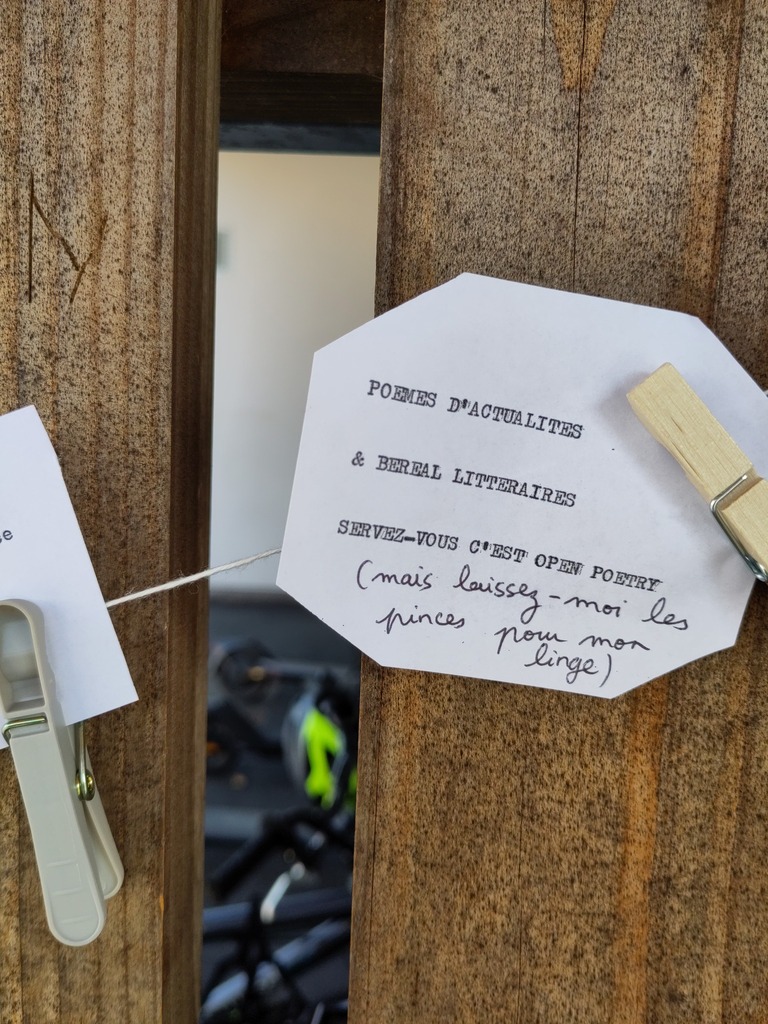 POEMES D'ACTUALITES
& BEREAL LITTERAIRES
SERVEZ-VOUS C'EST OPEN POETRY
(mais laissez-moi les
pinces pour mon
linge)